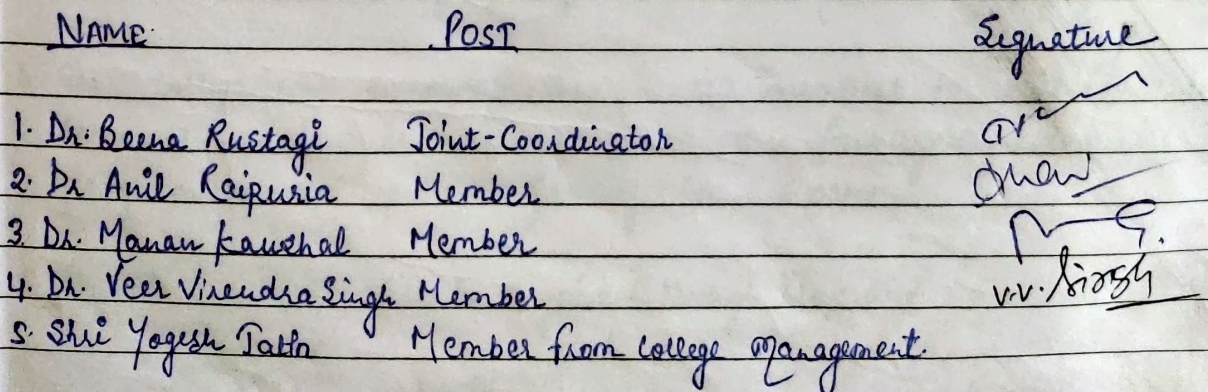 NAME POST Signature
1. Dr. Beena Rustagi Joint-Coordinator
2. Dr Anil Raipuria Member
3. Dr. Manan Kaushal Member
4. Dr. Veer Virendra Singh Member V.V. Singh
5. Shri Yogesh Member from College Management.